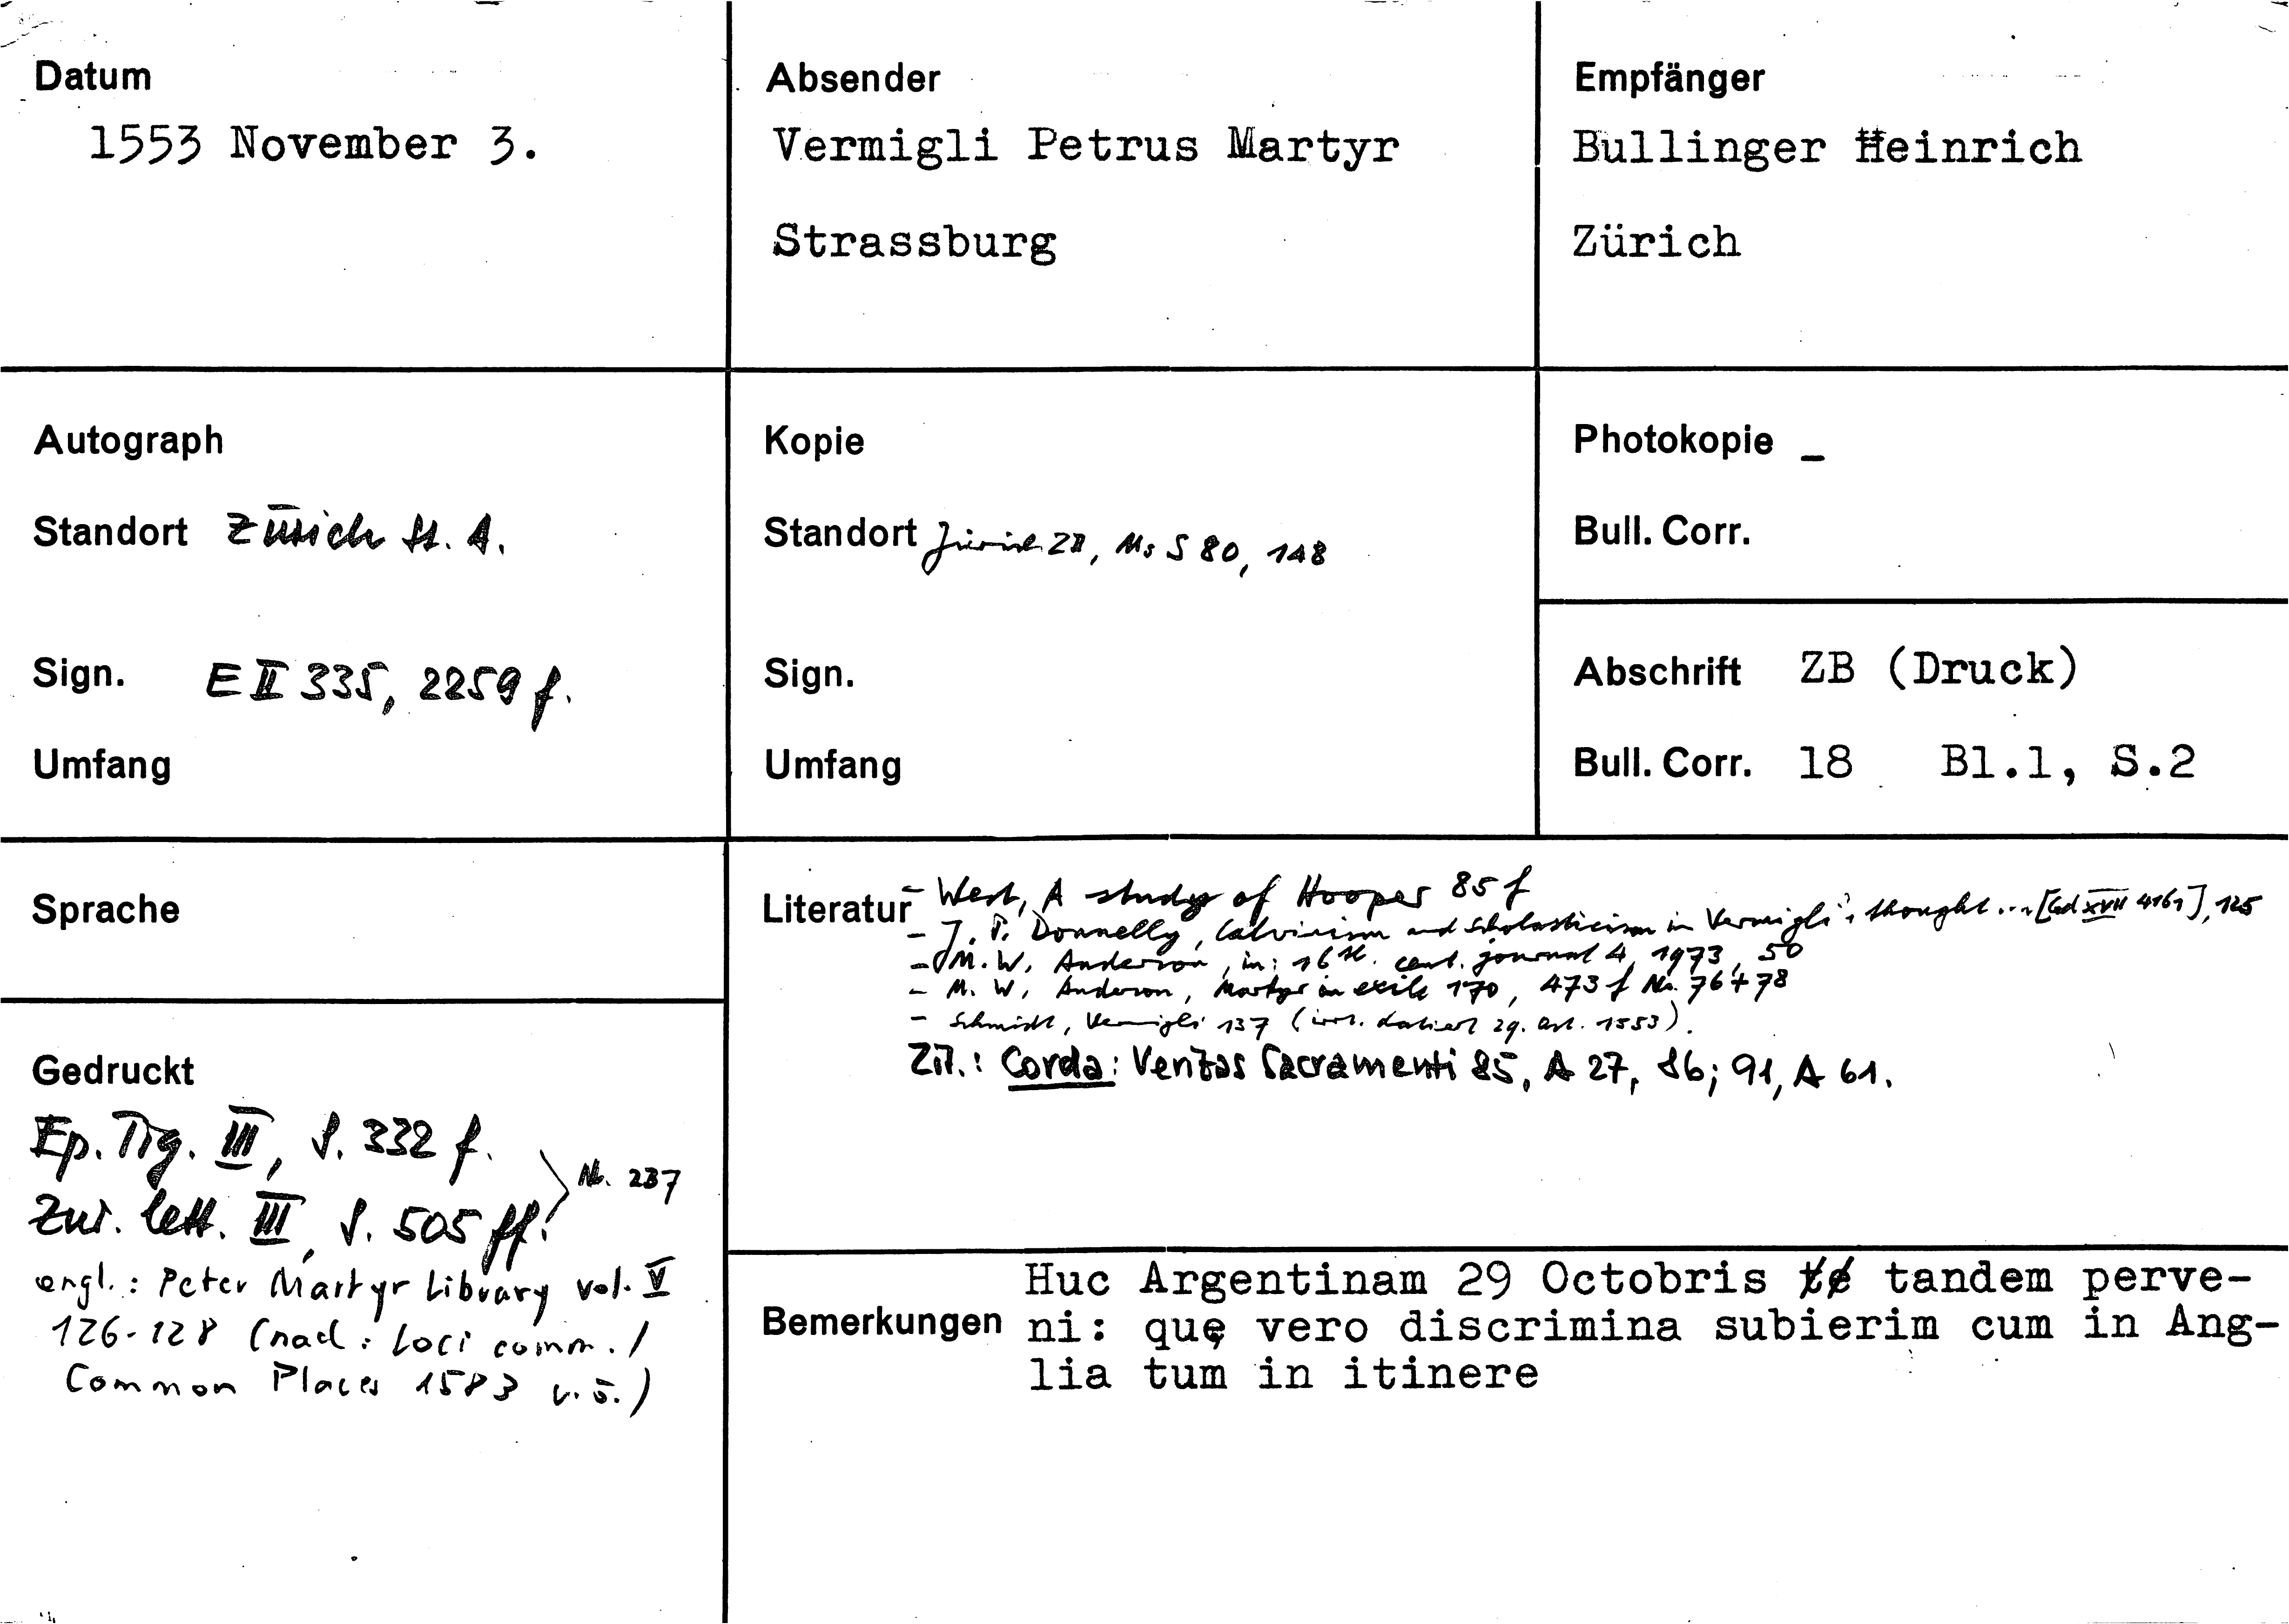 Datum
1553 November 3.
Absender
Vermigli Petrus Martyr
Strassburg
Empfänger
Bullinger Heinrich
Zürich
Autograph
Standort Zürich St. A.
Sign. E II 335, 2259 f.
Umfang
Kopie
Standort Zürich ZB, Ms S 80, 148
Sign.
Umfang
Photokopie _
Bull. Corr.
Abschrift ZB (Druck)
Bull. Corr. 18 Bl.1, S.2
Sprache
Gedruckt
Ep. Tig. III, S. 332 f.
Zur. lett. III, S. 505 ff.
Nr. 237
engl.: Peter Martyr Library vol. V
126-128 (nach: Loci comm. /
Common Places 1583 u. ö.)
Literatur - West, A study of Hooper 85 f
- J. P. Donnelly, Calvinism and Scholasticism in Vermigli's thought ... [Gd XVII 4161], 125
- M. W. Anderson, in: 16th. cent. journal 4, 1973, 50
- M. W. Anderson, Martyr in exile 170, 473 f Nr. 76 + 78
- Schmidt, Vermigli 137 (irrt. datiert 29. Okt. 1553).
Zit.: Corda: Veritas Sacramenti 85, A 27, 86; 91, A 61.
Bemerkungen
Huc Argentinam 29 Octobris tandem perve-
ni: quę vero discrimina subierim cum in Ang-
lia tum in itinere